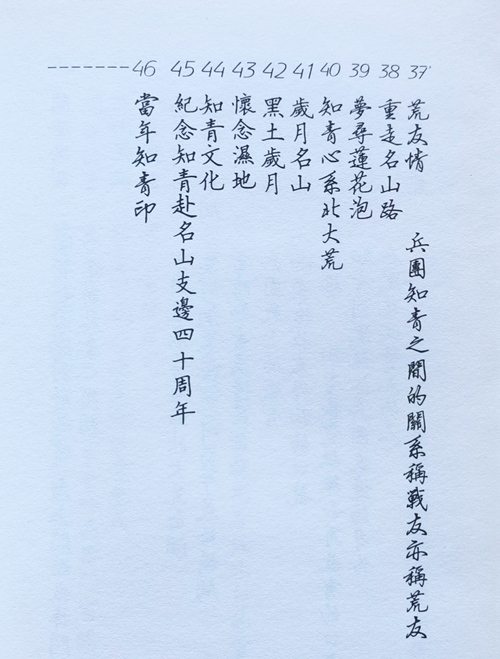 37 荒友情 兵團知青之間的關系稱戰友亦稱荒友
38 重走名山路
39 夢尋蓮花泡
40 知青心系北大荒
41 歲月名山
42 黑土歲月
43 懷念濕地
44 知青文化
45 紀念知青赴名山支邊四十周年
46 當年知青印